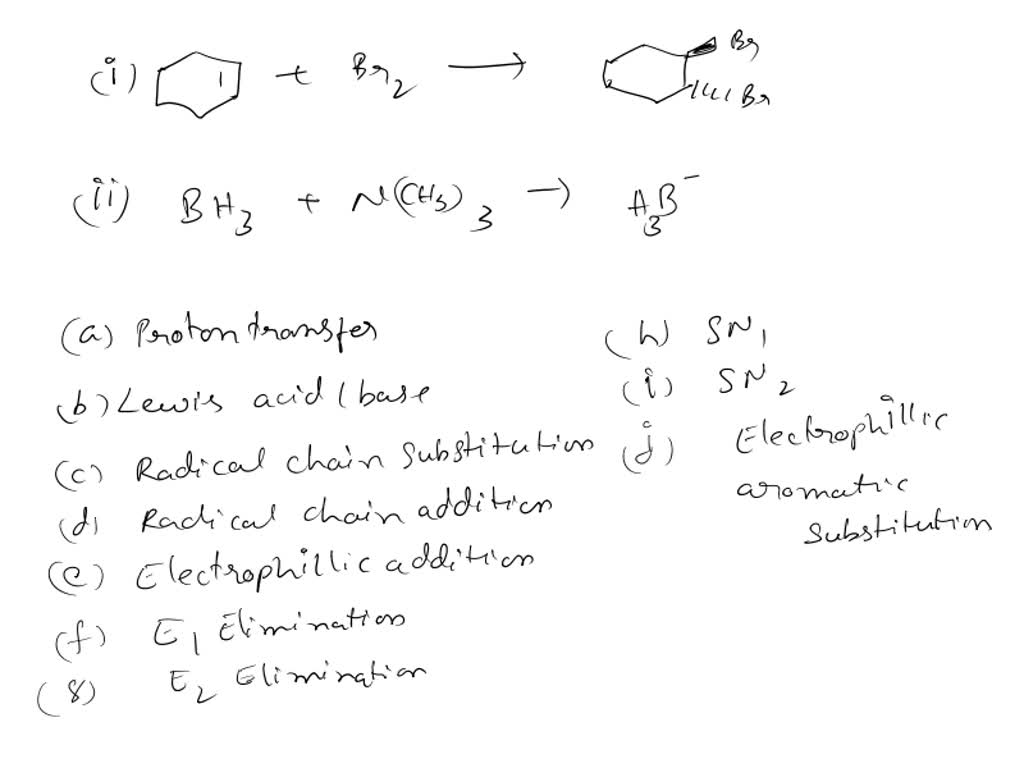 (i) + Br2 → Br
Br
(ii) BH3 + N(CH3)3 → A3B⁻
(a) Proton transfer
(b) Lewis acid / base
(c) Radical chain substitution
(d) Radical chain addition
(e) Electrophillic addition
(f) E1 Elimination
(g) E2 Elimination
(h) SN1
(i) SN2
(j) Electrophillic
aromatic
substitution